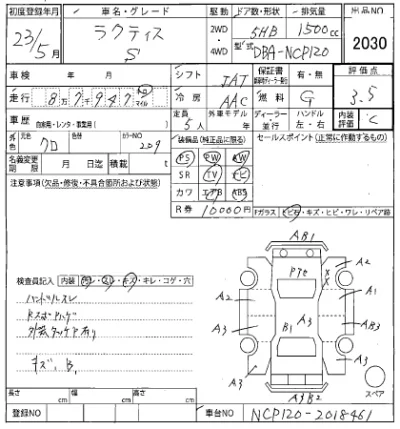 初度登録年月 車名・グレード 駆動 ドア数・形状 排気量 出品NO
23/5月 ラクティス S 2WD・4WD 5HB 1500cc 2030
型式 DBA-NCP120
車検 年 月 シフト IAT 保証書 有・無 評価点
走行 87947 km マイル 冷房 AAC 燃料 G 3.5
車歴 自家用・レンタ・事業用( ) 定員 5人 外車モデル ディーラー・並行 ハンドル 左・右 内装評価 C
元色 クロ 色替 カラーNO 209 装備品(純正品に限る) セールスポイント(正常に作動するもの)
名義変更期限 月 日迄 積載 t PS PW AW
注意事項(欠品・修復・不具合箇所および状態) SR TV ナビ
カワ エアB ABS
R券 10000円 Fガラス ヒビ・キズ・ヒビ・ワレ・リペア跡
AB1
A2 P7e X X A2
検査員記入 内装 キレ・コゲ・穴
ハンドルスレ A2 A3 A1
A3 B1 AB3
A3 A3
キズ、B. A3 A3
AB2 スペア
長さ cm 幅 cm 高さ cm
登録NO 車台NO NCP120-2018461